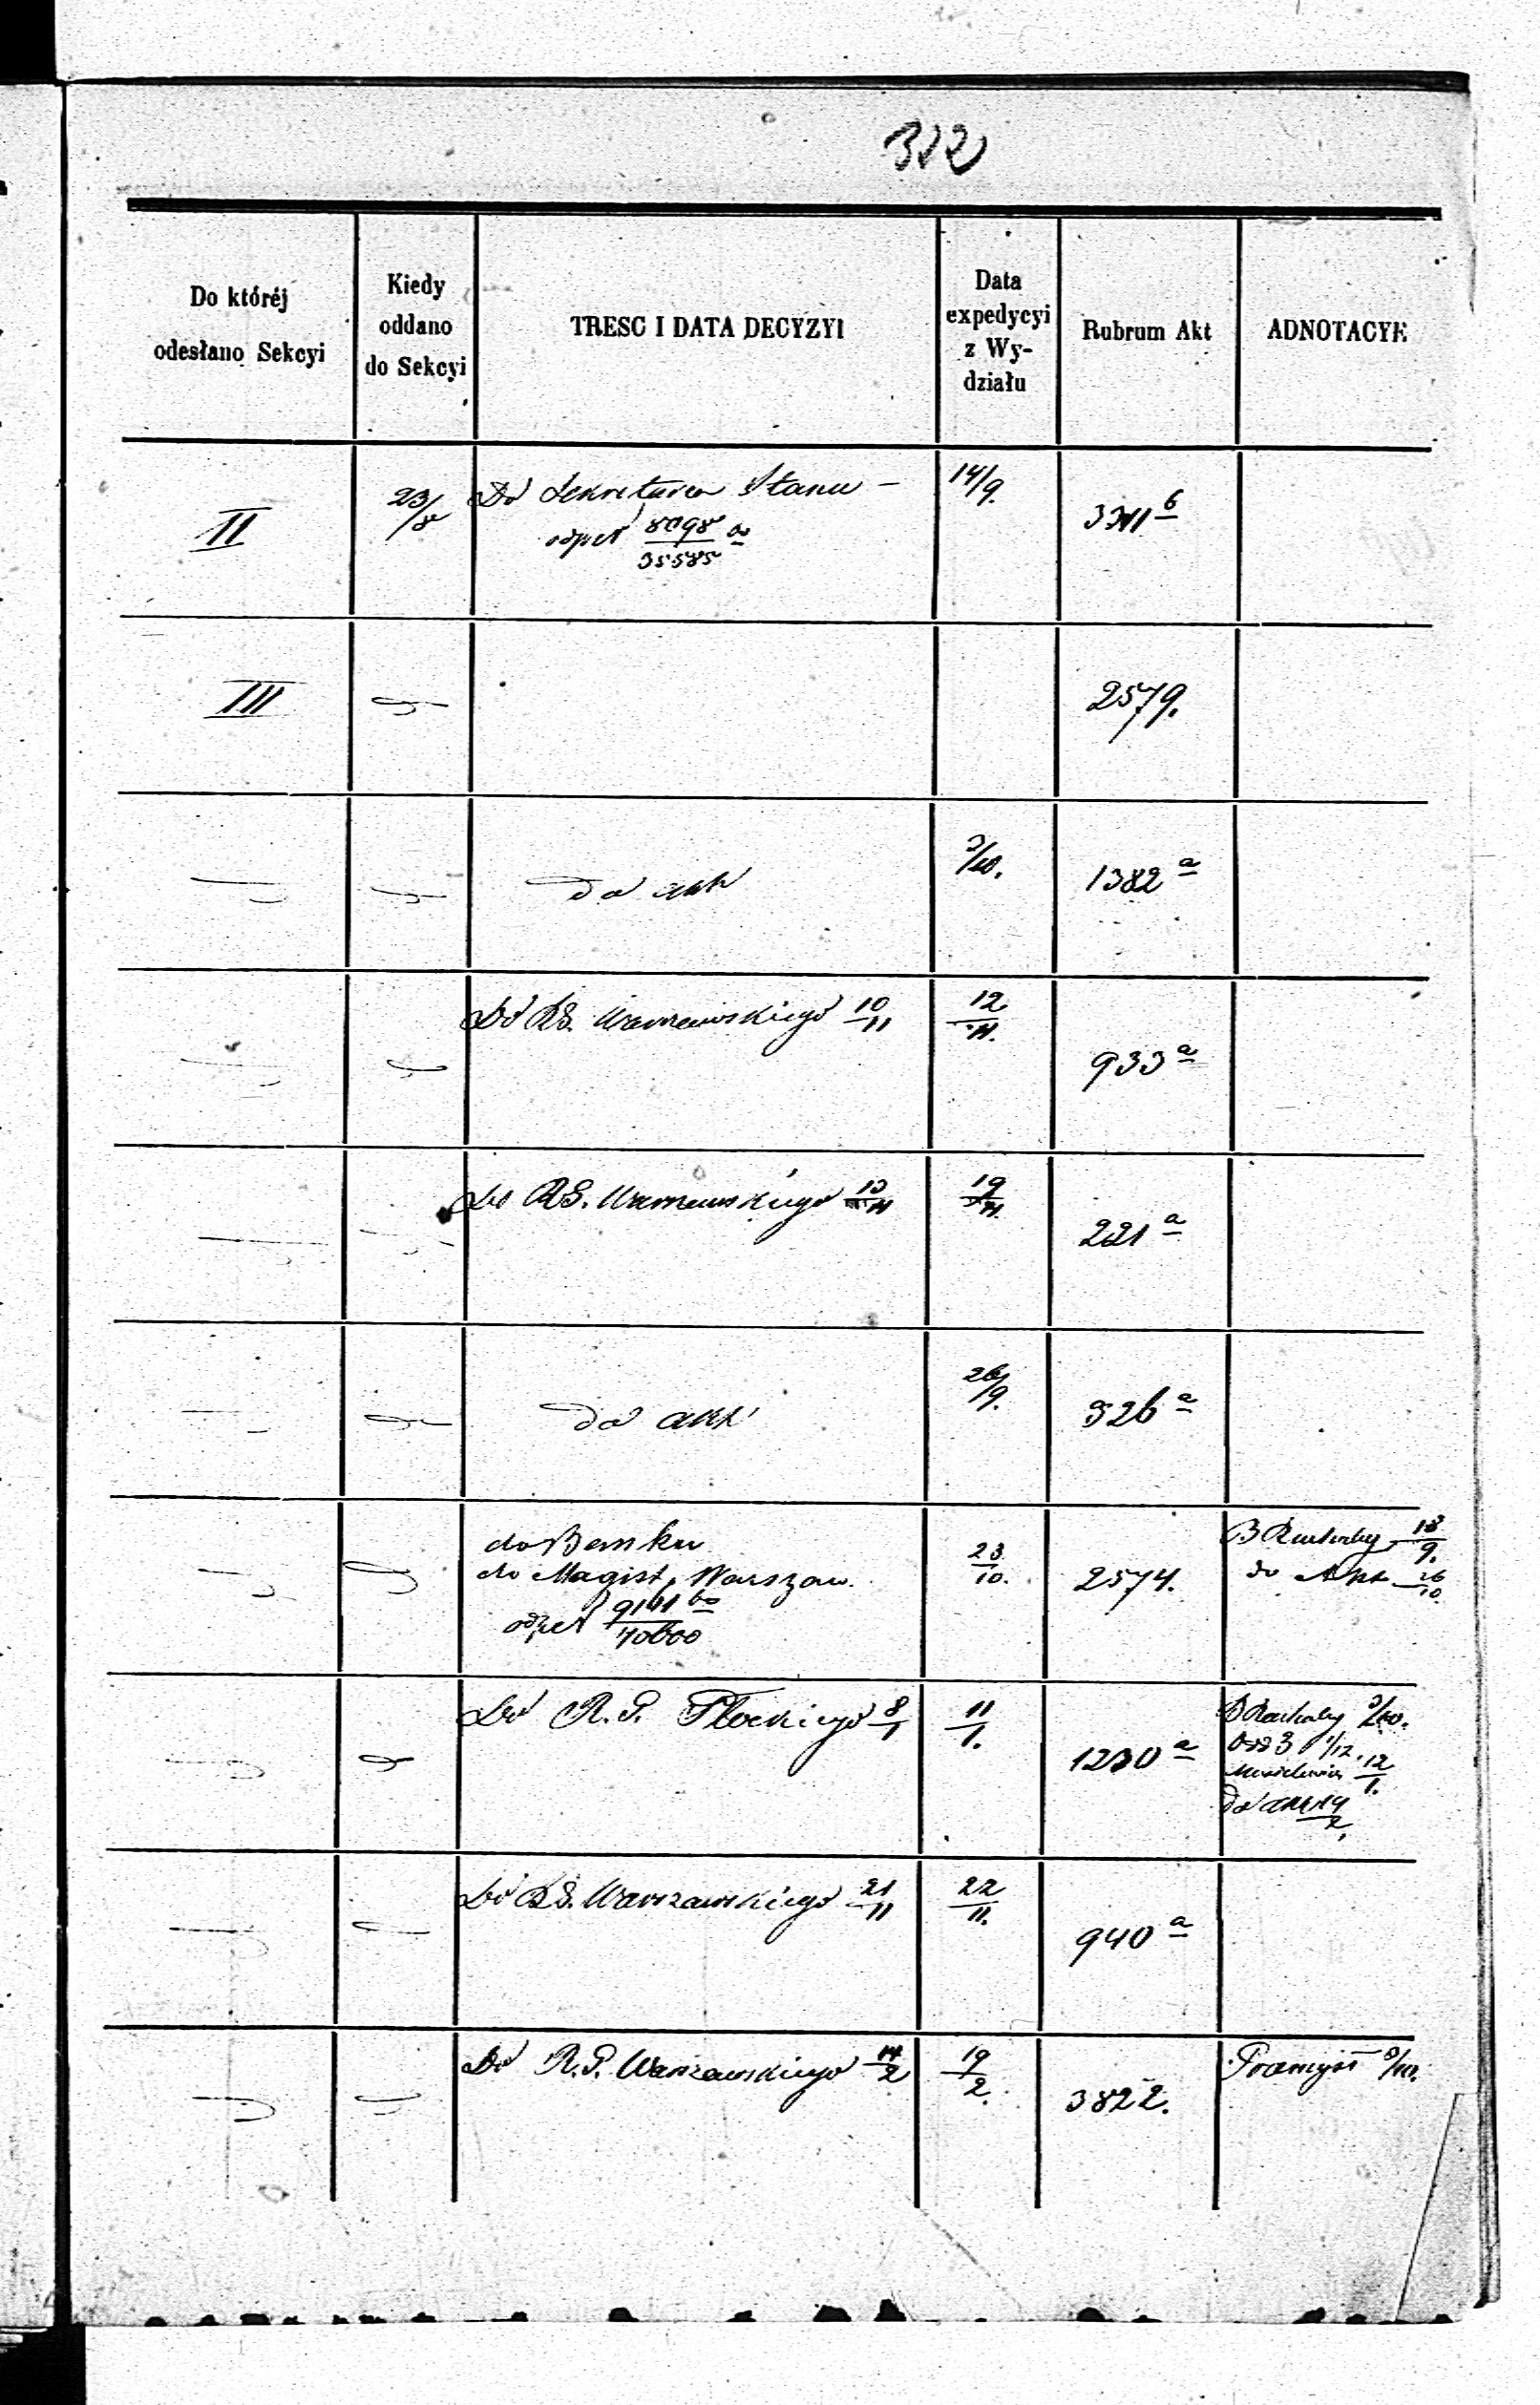 322
Do któréj
odesłano Sekcyi
Kiedy
oddano
do Sekcyi
TRESC I DATA DECYZYI
Data
expedycyi
z Wy-
działu
Rubrum Akt
ADNOTACYE
II
23/8
Do Sekretarza Stanu –
odpet 8098/35585
14/9.
III
2579.
do akt
1382 a
Do RG. Warszawskiego 10/11
12/11.
933 a
Do RG. Warszawskiego
19/11.
221 a
do akt
26/9.
326 a
do Banku
do Magist. Warszaw.
odpet 9141/40600
23/10.
2574.
18/9.
do Akt 26/10.
Do R. P. Płockiego 8/1
11/1.
1230 a
1/12.
12/1.
do akt 14/2.
Do RG. Warszawskiego 21/11
22/11.
940 a
Do R. P. Warszawskiego 14/2
19/2.
3822.